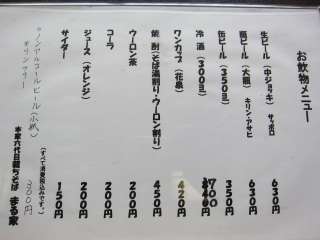 お飲物メニュー
生ビール(中ジョッキ) サッポロ 630円
瓶ビール(大瓶) キリン・アサヒ 630円
缶ビール(350ml) 350円
冷酒(300ml) 円
ワンカップ(花泉) 420円
焼酎(そば湯割り・ウーロン割り) 450円
ウーロン茶 200円
コーラ 200円
ジュース(オレンジ) 200円
サイダー 150円
(すべて消費税込みです。)
ノンアルコールビール(小瓶) 300円
キリンフリー
本家六代目裁ちそば まる家